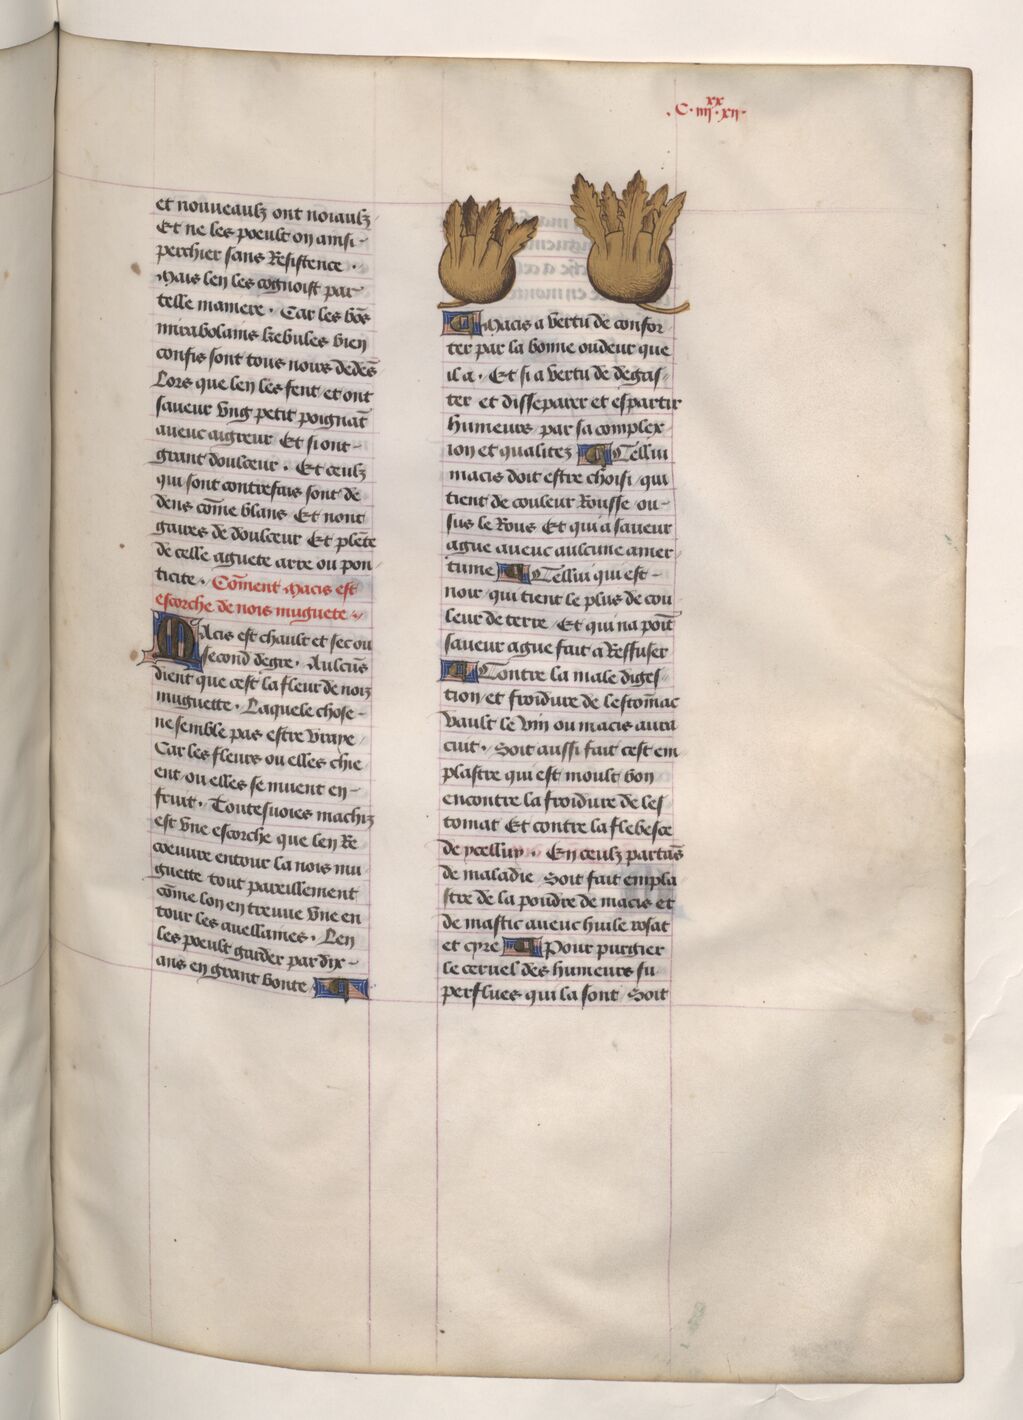 .C.iiii.xx.xii.
et nouueaulz ont noiaulz
Et ne les poeult on ainsi
perchier sans Resistence.
Mais len les cognoist par
telle maniere. Car les bōs
mirabolains kebules bien
confis sont tous noirs dedēs
Lors que len les fent et ont
saueur vng petit poignāt
aueuc aigreur Et si ont
grant doulceur. Et ceulz
qui sont contrefais sont de
dens cōme blans Et nont
gaires de doulceur Et plēte
de celle aguete arre ou pon
ticite. Cōment Macis est
escorche de nois muguete.
Macis est chault et sec ou
second degre. Aulcūs
dient que cest la fleur de noix
muguette. Laquele chose
ne semble pas estre vraye
Car les fleurs ou elles chie
ent ou elles se muent en
fruit. Toutesuoies machiz
est vne escorche que len Re
coeuure entour la nois mu
guette tout pareillement
cōme lon en treuue vne en
tour les auellaines. Len
les poeult garder par dix
ans en grant bonte
Macis a vertu de confor
ter par la bonne oudeur que
il a. Et si a vertu de degas
ter et disseparer et espartir
humeurs par sa complex
ion et qualitez Cellui
macis doit estre choisi qui
tient de couleur Rousse ou
sus le Rous Et qui a saueur
ague aueuc aulcune amer
tume Cellui qui est
noir qui tient le plus de cou
leur de terre Et qui na poīt
saueur ague fait a Reffuser
Contre la male diges
tion et froidure de lestōmac
vault le vin ou macis aura
cuit. Soit aussi fait cest em
plastre qui est moult bon
encontre la froidure de les
tomac Et contre la flebesce
de ycelluy. En ceulz partūs
de maladie Soit fait empla
stre de la pouldre de macis et
de mastic aueuc huile rosat
et cyre Pour purgier
le ceruel des humeurs su
perflues qui la sont Soit